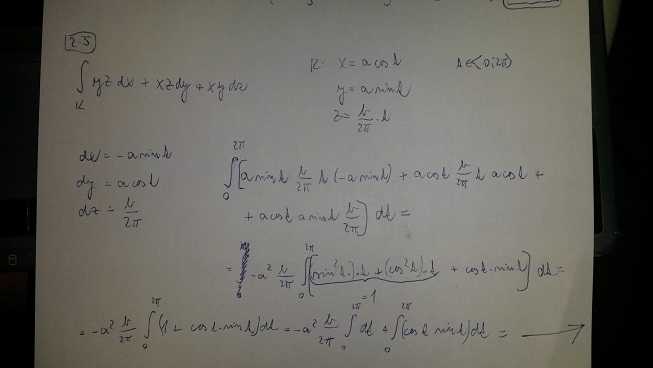 2.5
∫_K yz dx + xz dy + xy dz
K: x = a cos t   t ∈ <0; 2π)
y = a sin t
z = b/2π · t
dx = -a sin t
dy = a cos t
dz = b/2π
∫_0^{2π} [a sin t b/2π t (-a sin t) + a cos t b/2π t a cos t +
+ a cos t a sin t b/2π] dt =
= -a² b/2π ∫_0^{2π} [(sin² t)·t + (cos² t)·t + cos t · sin t] dt =
= 1
= -a² b/2π ∫_0^{2π} (1 + cos t · sin t) dt = -a² b/2π ∫_0^{2π} dt + ∫_0^{2π} (cos t sin t) dt = →